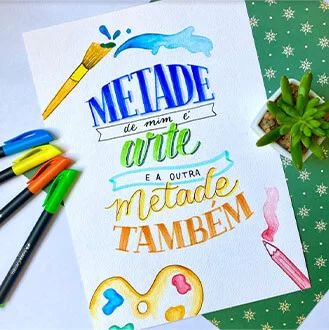 METADE
de mim é
arte
E A OUTRA
Metade
TAMBÉM